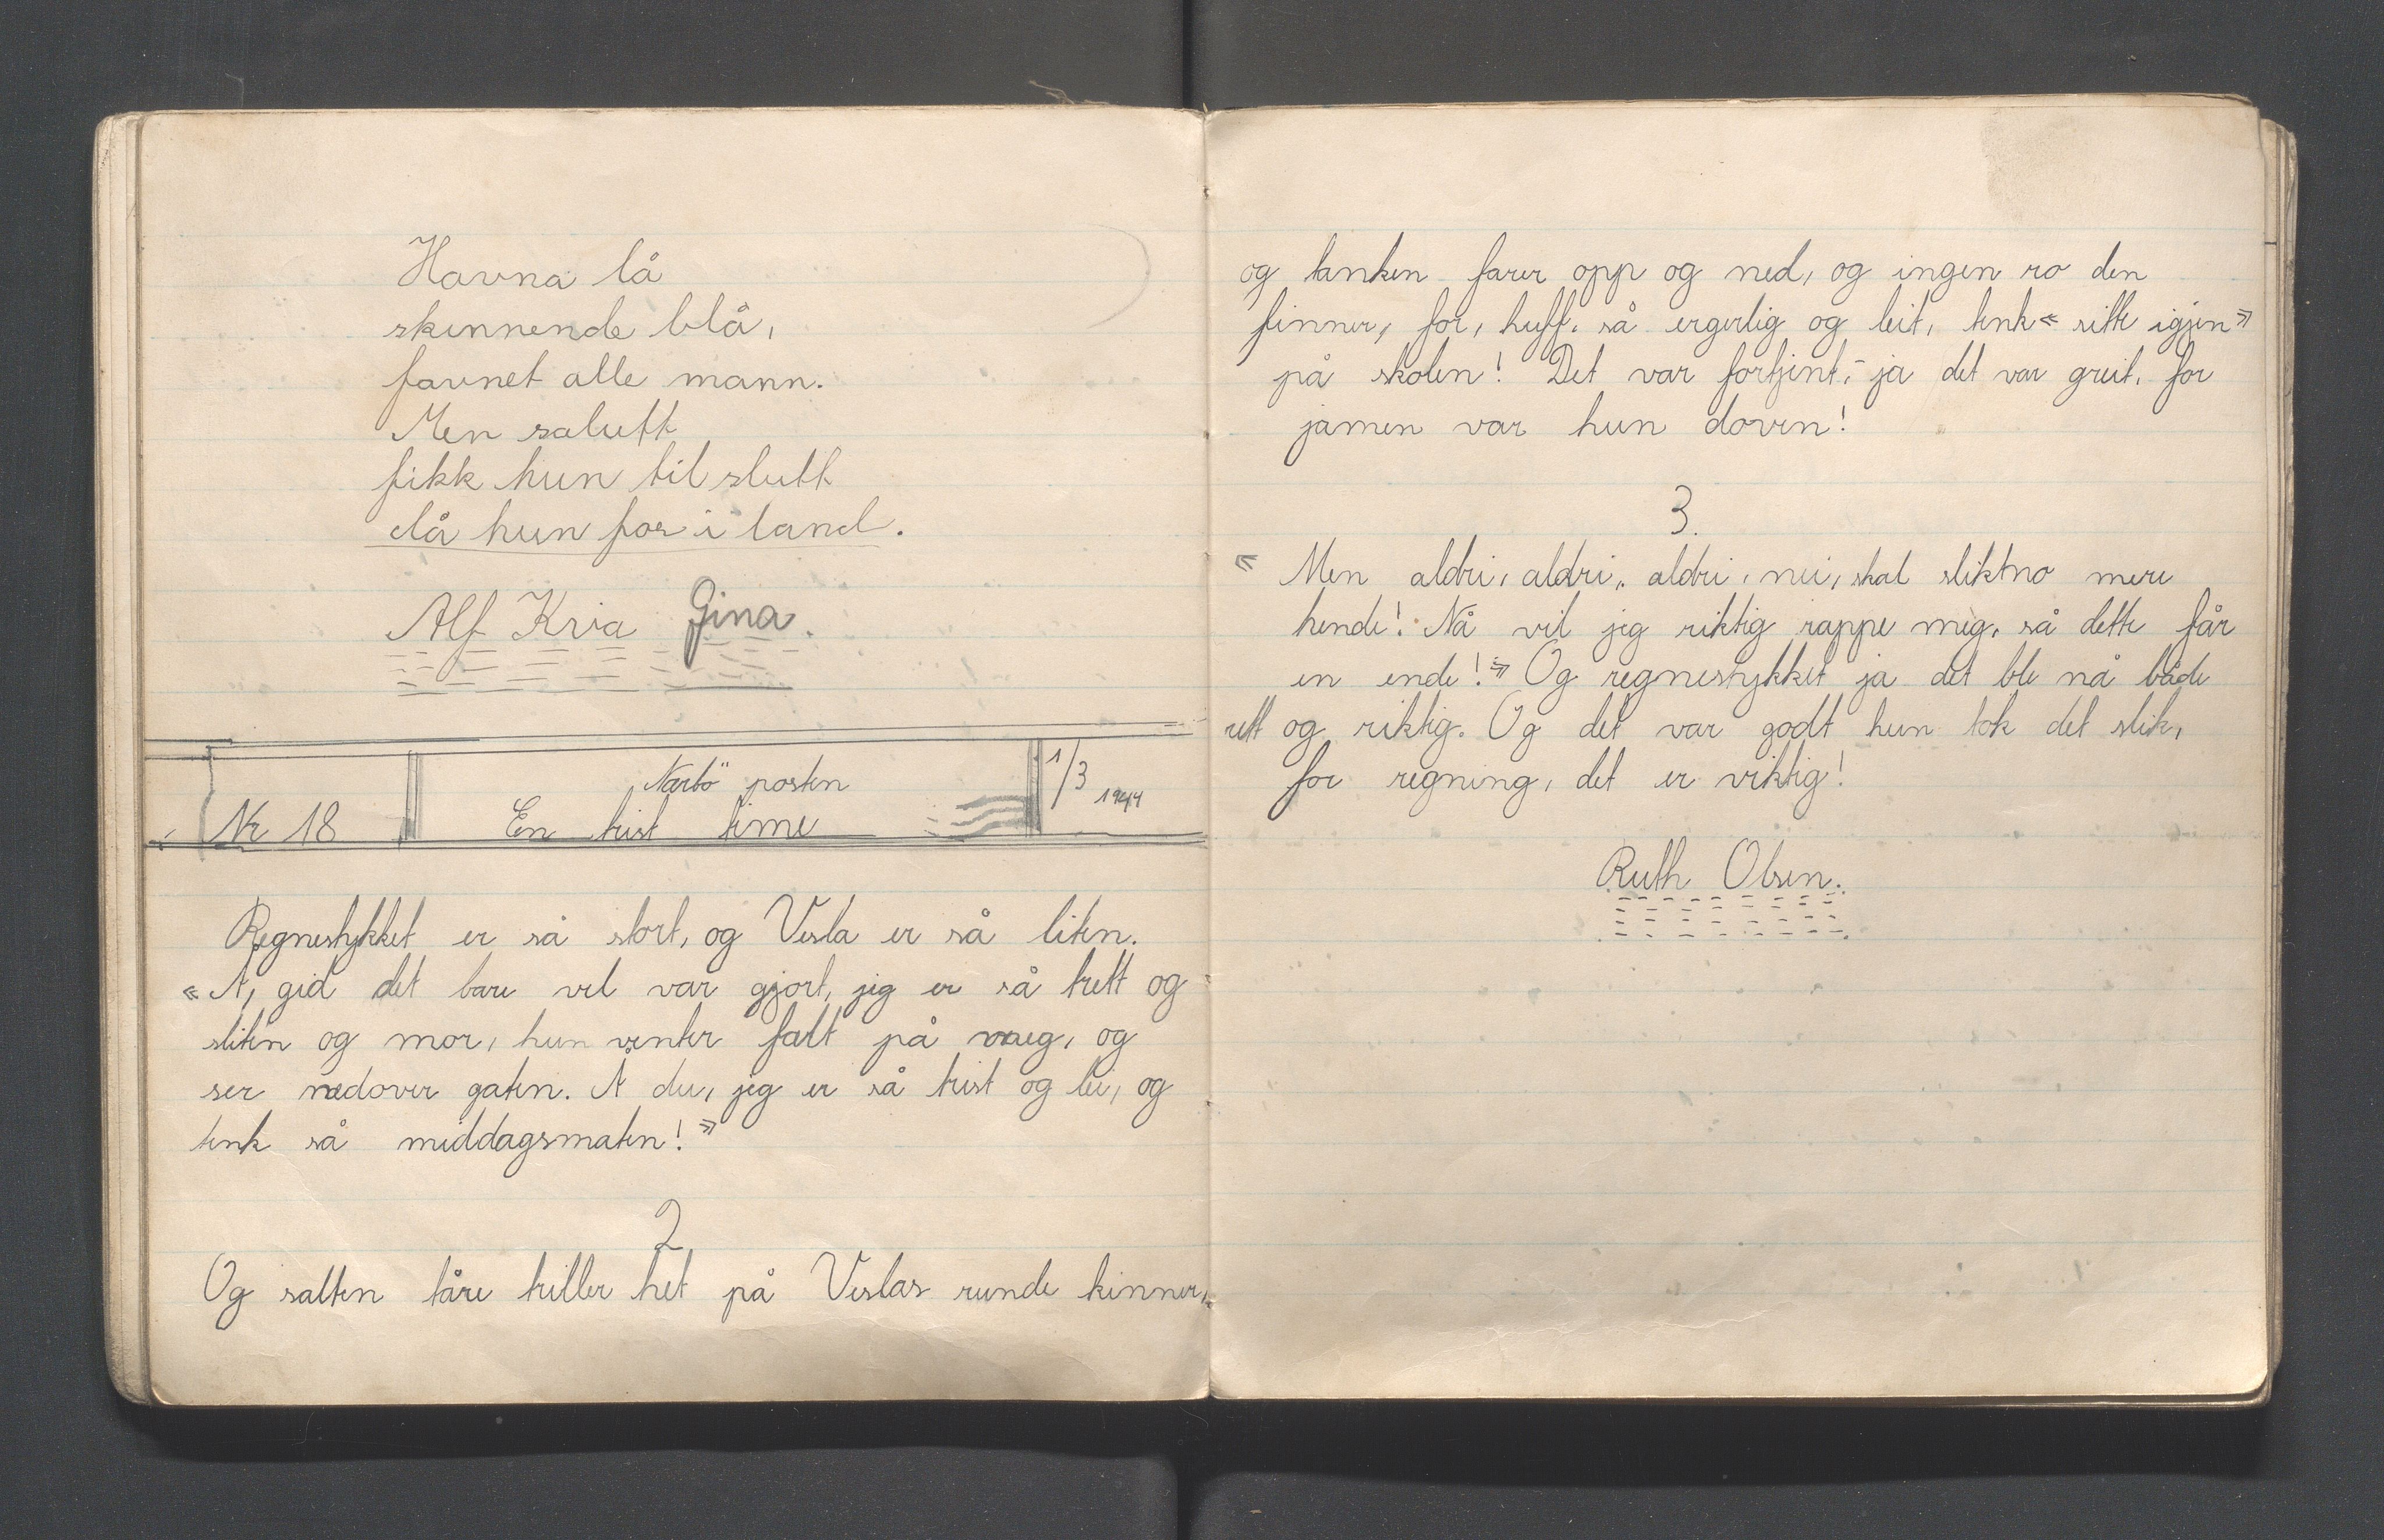 Havna lå
skinnende blå,
favnet alle mann.
Men salutt
fikk hun til slutt
då hun for i land.
Alf Kvia Gina.
Nr 18
Nærbö posten
En trist time
1/3 1944
Regnestykket er så stort, og Vesla er så liten.
« Å, gid det bare vel var gjort, jeg er så trett og
sliten og mor, hun venter fælt på meg, og
ser nedover gaten. Å du, jeg er så trist og lei, og
tenk så middagsmaten! »
2
Og salten tåre triller het på Veslas runde kinner,
og tanken farer opp og ned, og ingen ro den
finner, for, huff. så ergerlig og leit, tenk « sitte igjen »
på skolen! Det var fortjent, - ja det var greit, for
jamen var hun doven!
3.
« Men aldri, aldri, aldri, nei, skal slikt no mere
hende! Nå vil jeg riktig rappe meg, så dette får
en ende! » Og regnestykket ja det ble nå både
rett og riktig. Og det var godt hun tok det slik,
for regning, det er viktig!
Ruth Olsen.